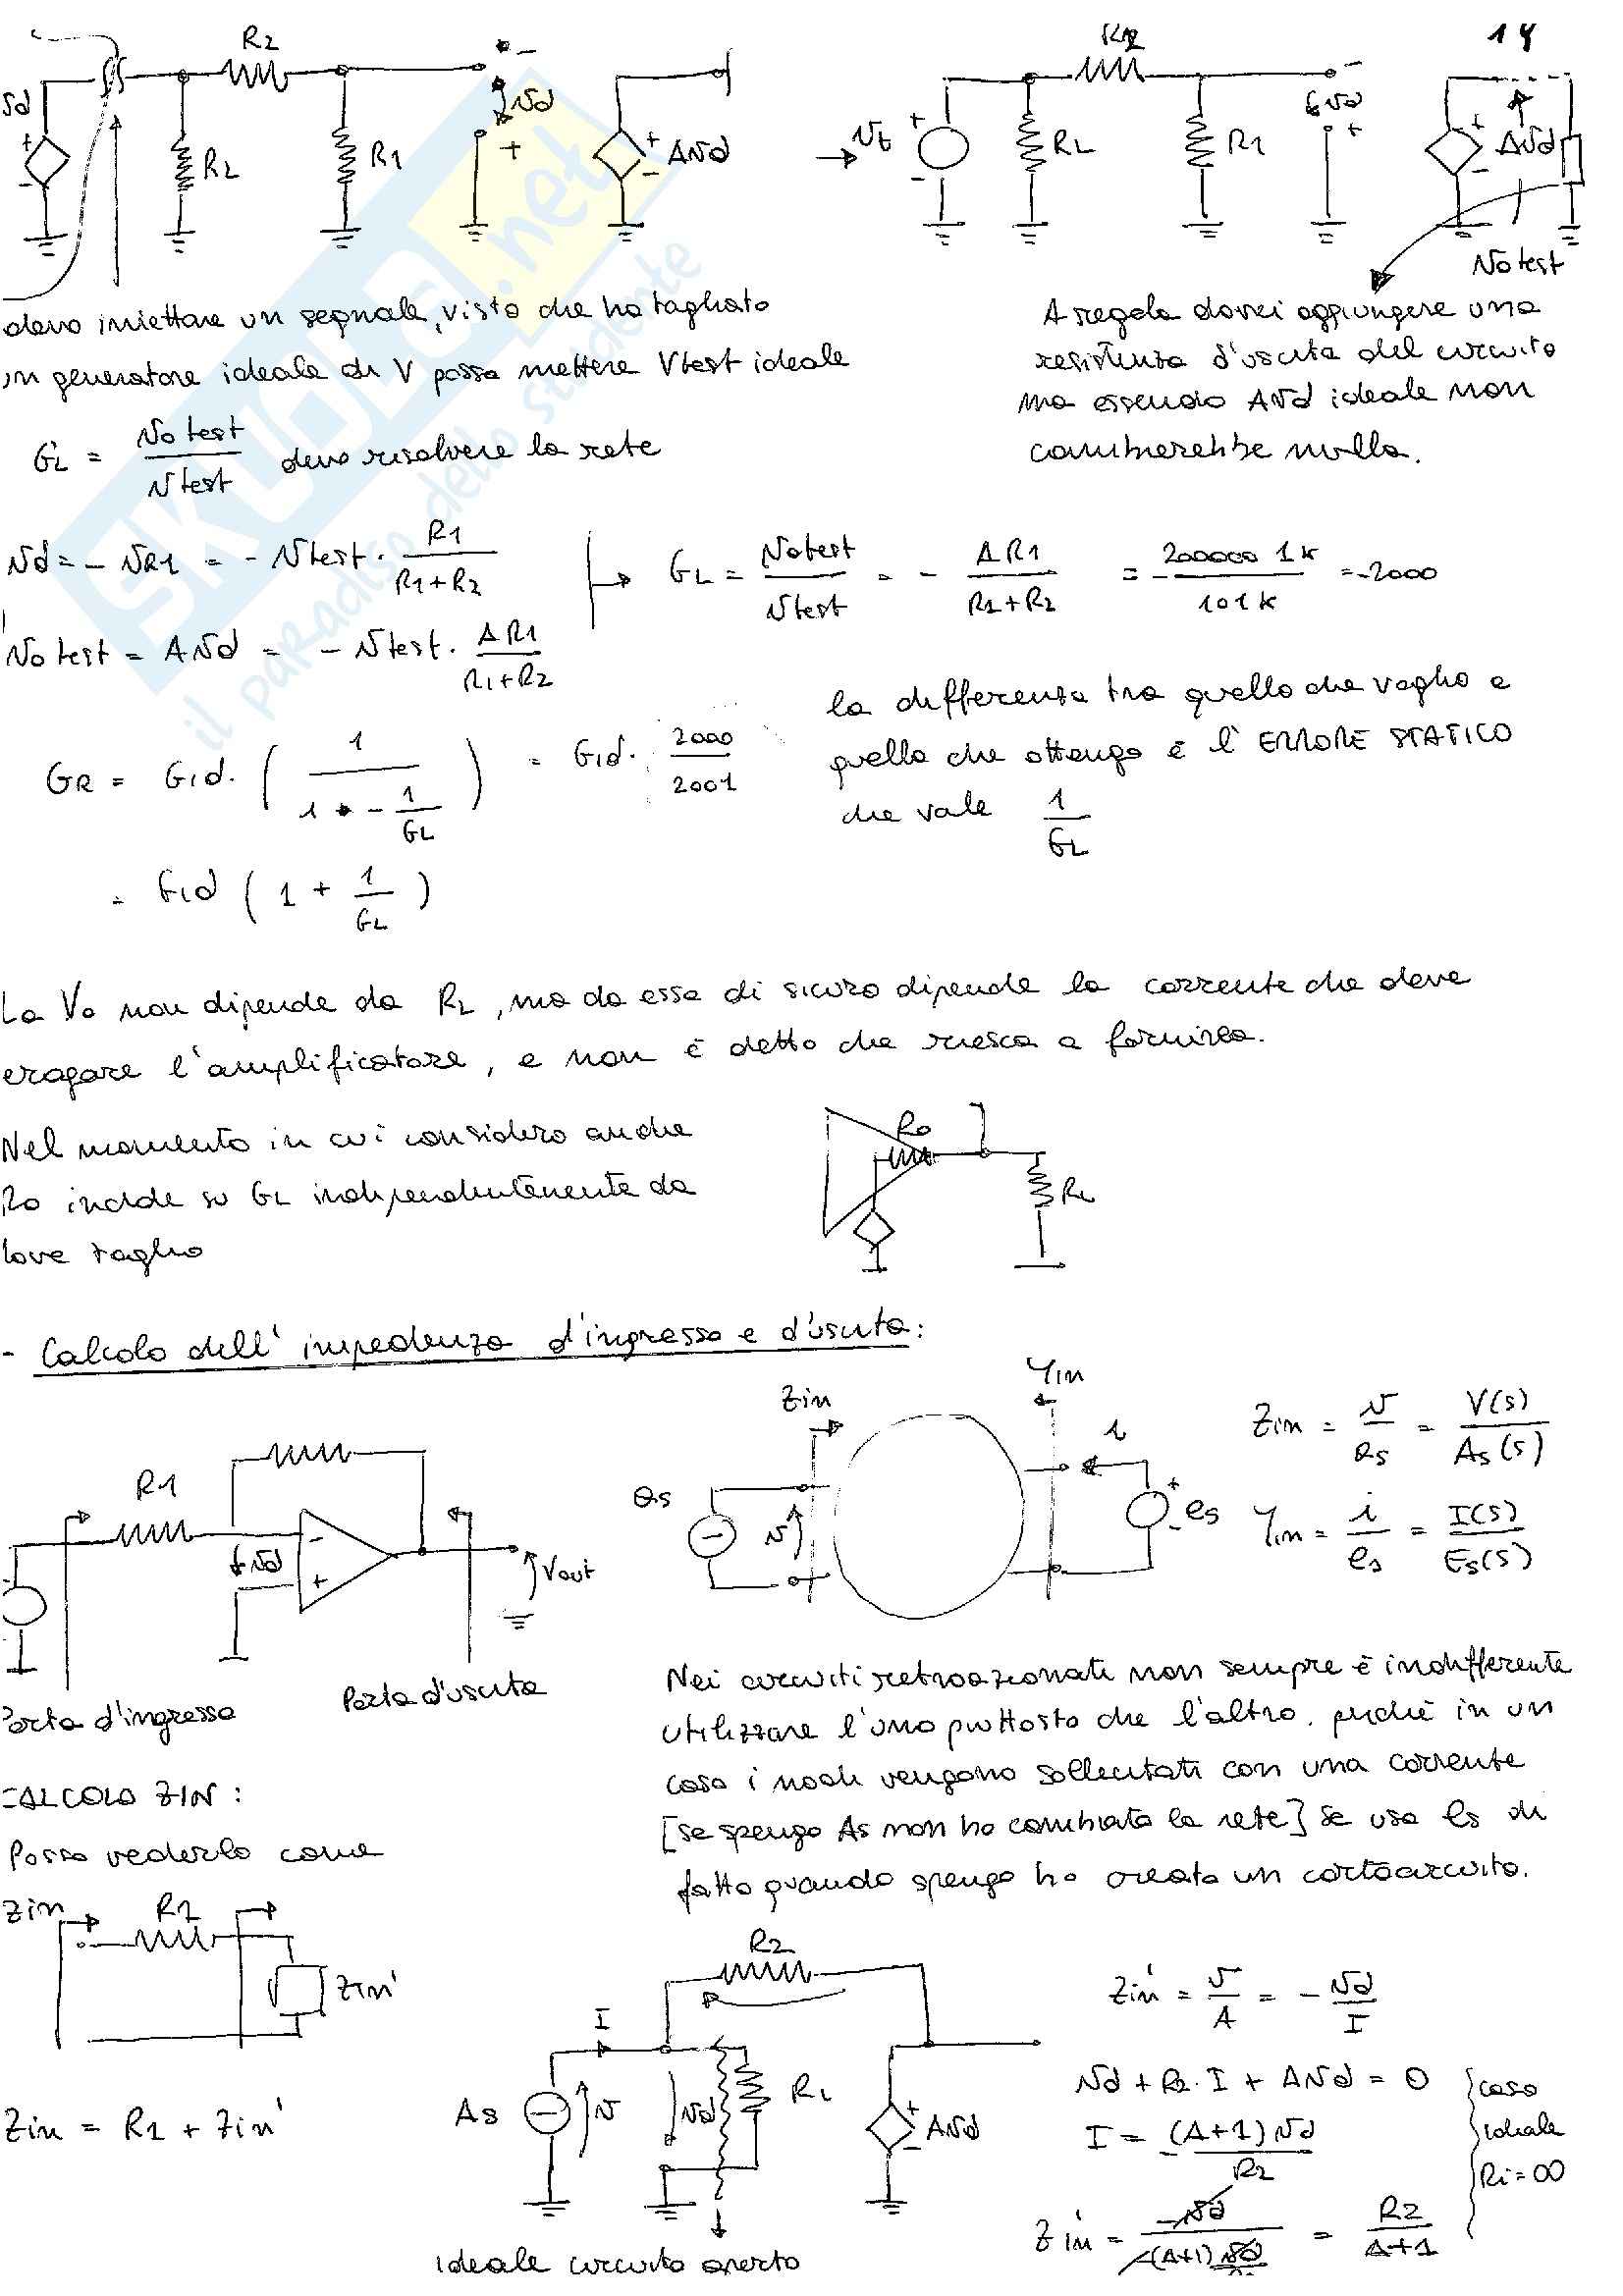 14
R2
R2
Vd
RL
R1
Vd
+
-
AVd
Vt
RL
R1
Vd
AVd
Vo test
devo iniettare un segnale, visto che ho tagliato
un generatore ideale di V posso mettere Vtest ideale
A regola dovrei aggiungere una
resistenza d'uscita del circuito
ma essendo AVd ideale non
cambierebbe nulla.
GL = Vo test / Vtest devo risolvere la rete
Vd = - VR1 = - Vtest · R1 / R1+R2
GL = Votest / Vtest = - AR1 / R1+R2 = - 200000 1k / 101k = -2000
Vo test = AVd = - Vtest · AR1 / R1+R2
la differenza tra quello che voglio e
quello che ottengo è l'ERRORE STATICO
che vale 1 / GL
GR = Gid · ( 1 / 1 - 1 / GL ) = Gid · 2000 / 2001
= Gid ( 1 + 1 / GL )
La Vo non dipende da RL, ma da essa di sicuro dipende la corrente che deve
erogare l'amplificatore, e non è detto che riesca a fornirla.
Nel momento in cui considero anche
Ro incide su GL indipendentemente da
dove taglio
Ro
RL
- Calcolo dell'impedenza d'ingresso e d'uscita:
R1
+Vd
-
+
Vout
Porta d'ingresso
Porta d'uscita
Zin
Yin
as
v
i
es
Zin = v / as = V(s) / As(s)
Yin = i / es = I(s) / Es(s)
Nei circuiti retroazionati non sempre è indifferente
utilizzare l'uno piuttosto che l'altro, perchè in un
caso i nodi vengono sollecitati con una corrente
[se spengo As non ho cambiato la rete] se uso es di
fatto quando spengo ho creato un cortocircuito.
CALCOLO ZIN:
Posso vederlo come
Zin
R1
Zin'
Zin = R1 + Zin'
R2
I
As
V
Vd
Ri
AVd
ideale circuito aperto
Zin' = v / A = - Vd / I
Vd + R2 · I + AVd = 0
I = - (A+1) Vd / R2
caso
ideale
Ri = ∞
Zin = -Vd / -(A+1) Vd = R2 / A+1
SKUOLA.net
il paradiso dello studente